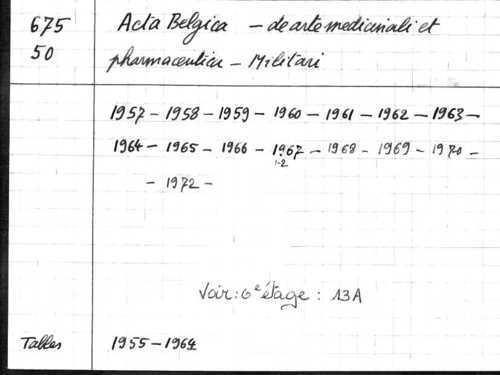 675 Acta Belgica - de arte medicinali et
50 pharmaceutica - Militari
1957 - 1958 - 1959 - 1960 - 1961 - 1962 - 1963 -
1964 - 1965 - 1966 - 1967 - 1968 - 1969 - 1970 -
1-2
- 1972 -
Voir : 6e étage : 13A
Tables 1955-1964